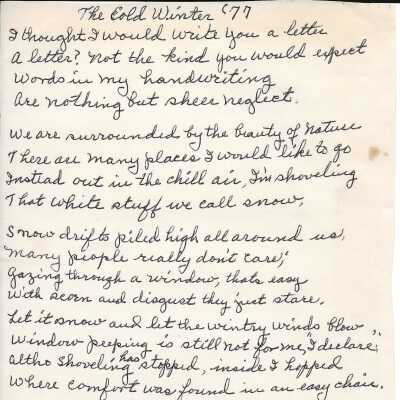 The Cold Winter '77
I thought I would write you a letter
A letter? Not the kind you would expect
Words in my handwriting
Are nothing but sheer neglect.
We are surrounded by the beauty of Nature
There are many places I would like to go
Instead out in the chill air, I'm shoveling
That white stuff we call snow,
Snow drifts piled high all around us,
"Many people really don't care;"
Gazing through a window, thats easy
With scorn and disgust they just stare.
Let it snow and let the wintry winds blow,
Window peeping is still not for me, I declare;
Altho shoveling has stopped, inside I hopped
Where comfort was found in an easy chair.